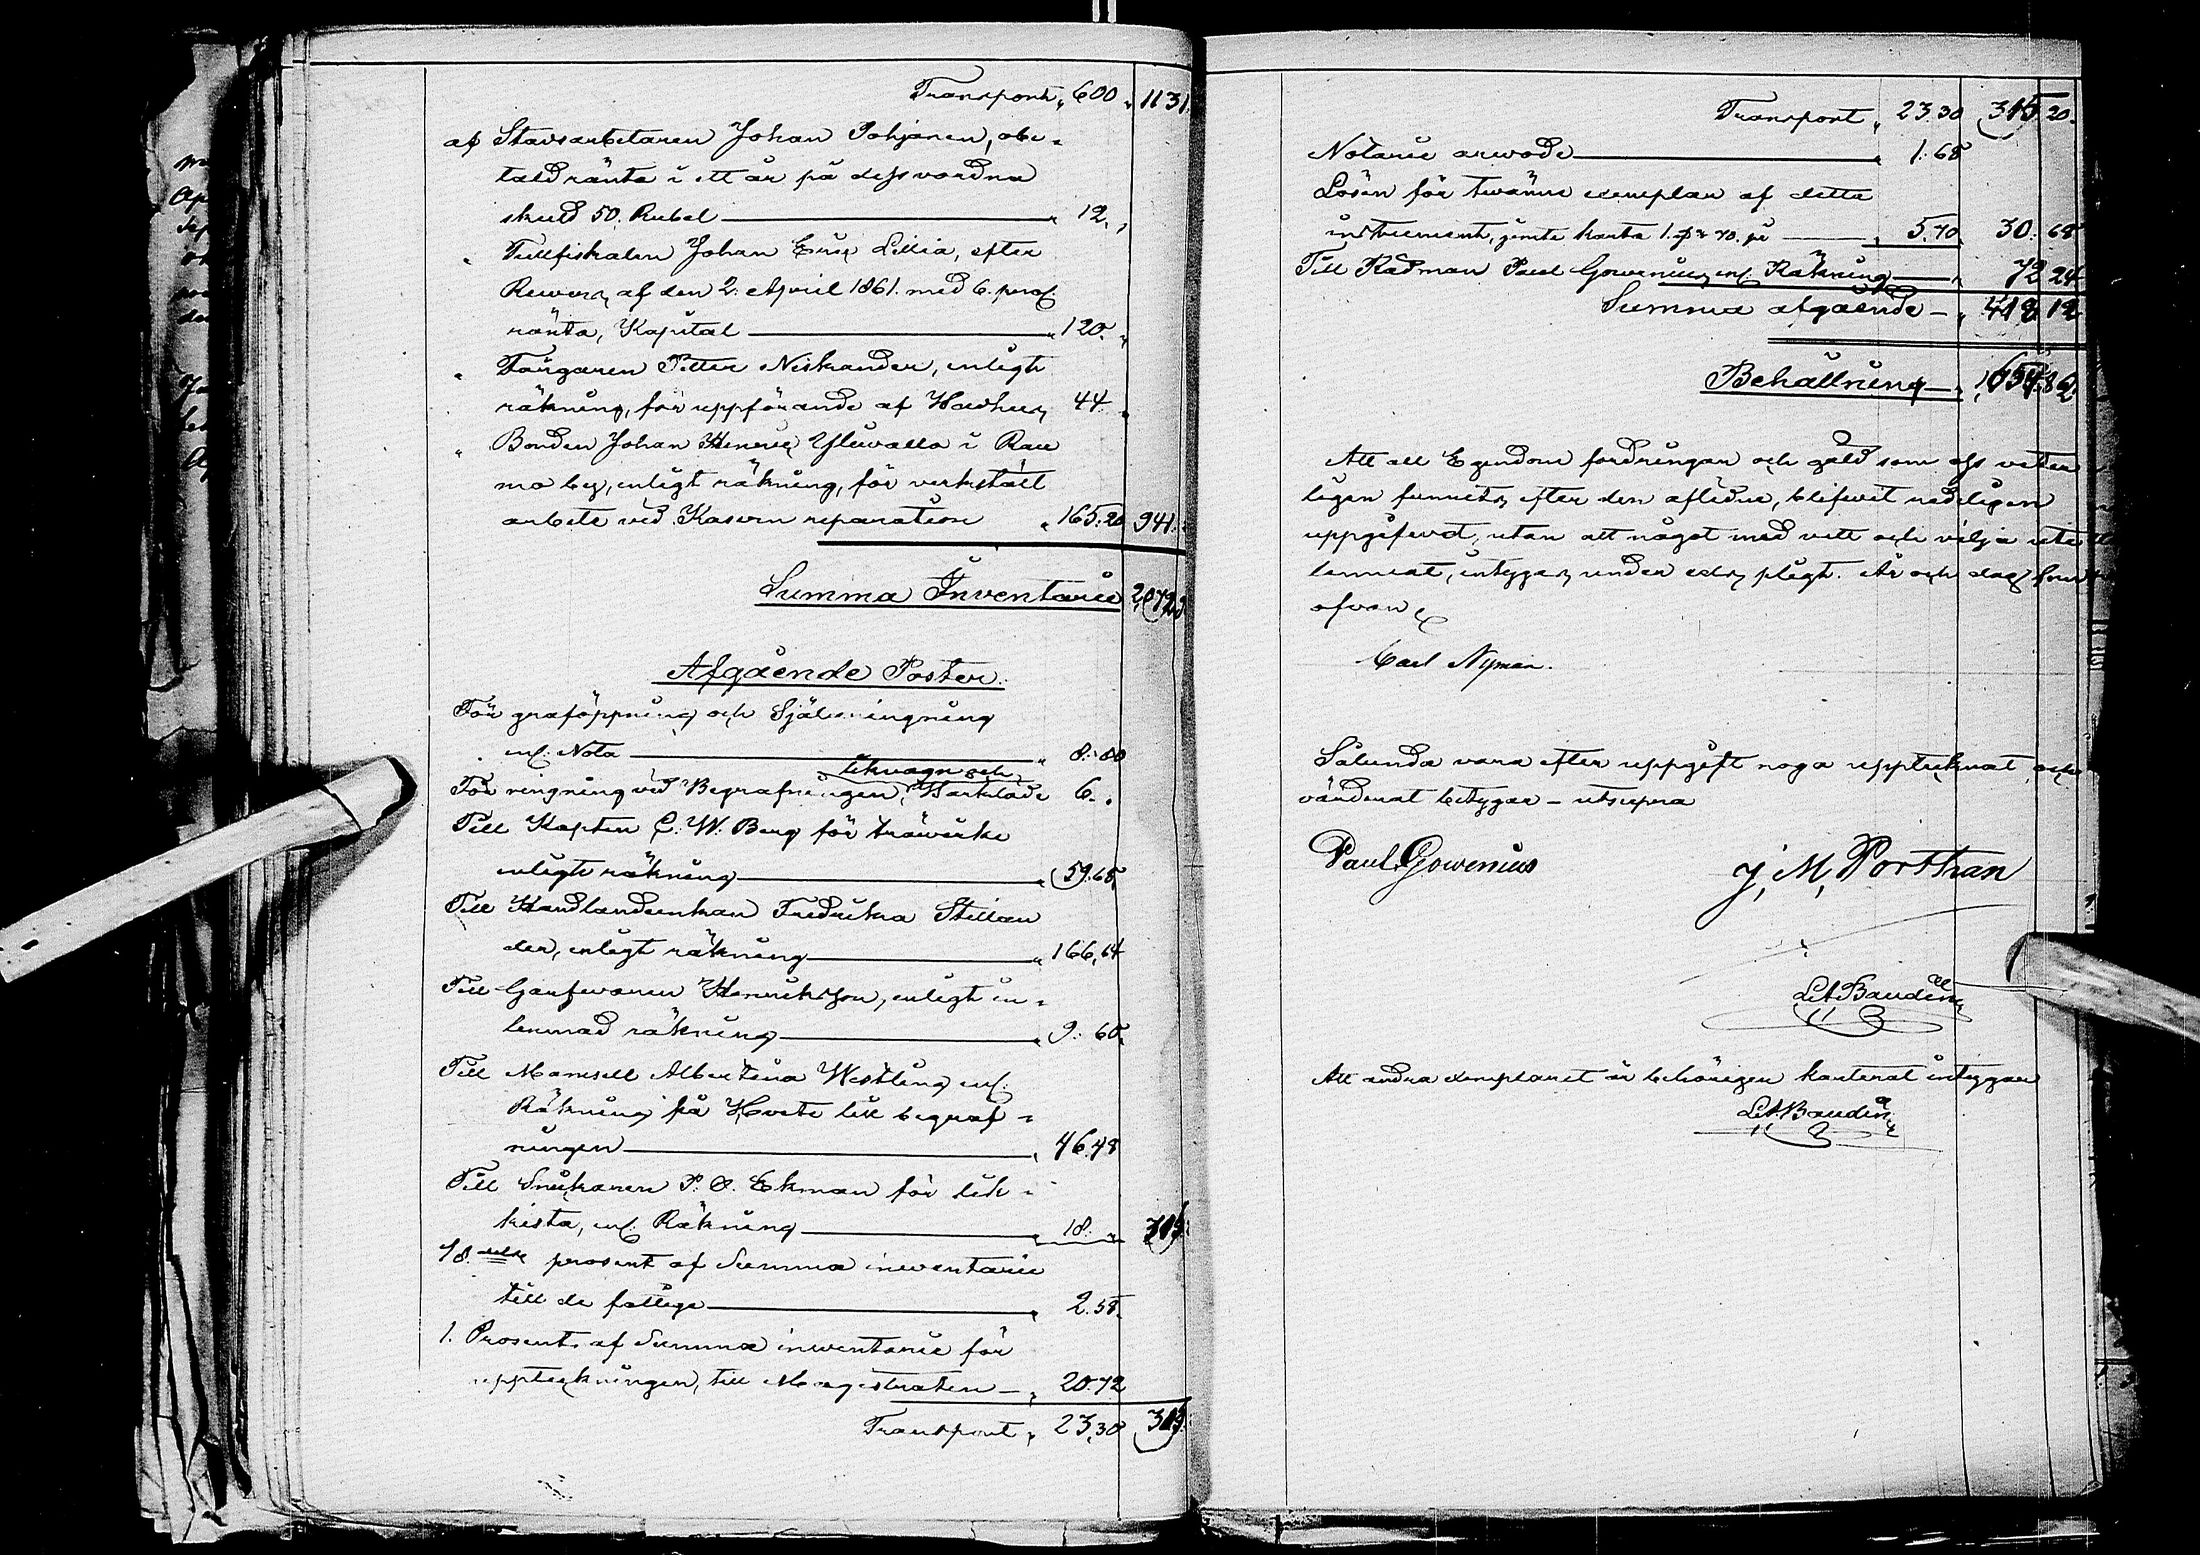 Transport „ 600 „ 1131.
af Stadsarbetaren Johan Pohjanen, obe-
tald ränta i ett år på dess vordna
skuld 50. Rubel „ 12. „
„ Tullfiskalen Johan Eric Lillia, efter
Revers, af den 2. April 1861. med 6. proc.
ränta, Kapital „ 120. „
„ Färgaren Petter Niskander, enligt
räkning, för uppförande af 44. „
„ Bonden Johan Henric Yliuvalla i Rau
mo by, enligt räkning, för verkstält
arbete vid Kasern reparation „ 165. 20 941.
Summa Inventarie 2,072
Afgående Poster.
För graföppning och Själaringning
enl. Nota „ 8. 80
likvagn och
För ringning vid Begrafningen, Barklade 6. „
Till Kapten C. W. Berg för trävirke
enligt räkning „ 59. 68,
Till Handlandeenkan Fredrika Stillan
der, enligt räkning „ 166, 64
Till Garfvaren Henriksson, enligt in-
lemnad räkning „ 9. 60.
Till Mamsell Albertina Westling enl.
Räkning på Hvete till begraf-
ningen „ 46. 48
Till Snickaren P. O. Ekman för lik-
kista, enl. Räkning „ 18. „ 315.
1/8 prosent af Summa inventarie
till de fattiga „ 2. 58.
1. Prosent. af Summa inventarie för
uppteckningen, till Magistraten „ 20. 72
Transport „ 23, 30 315.
Transport „ 23. 30 315. 20.
Notarie arwode „ 1. 68
Lösen för twänne exemplar af detta
instrument, jemte karta 1. 70. „ 5. 70. 30. 68
Till Rådman Paul Gowenius, enl. Räkning „ 72 24
Summa afgående „ 418 12
Behållning „ 1,654. 82.
Att all Egendom fordringar och gäld som oss veter
ligen funnits, efter den aflidne, blifvit redeligen
uppgifvet, utan att något med vett och vilja ute
lemnat, intygas, under eds plegt. År och dag som
ofvan
Carl Nyman.
Sålunda vara efter uppgift noga upptecknat och
värderat betygar – utsupra
Paul Gowenius J, M, Porthan
L A Baudin
Att andra exemplaret är behörigen karterat intygar
L A Baudin